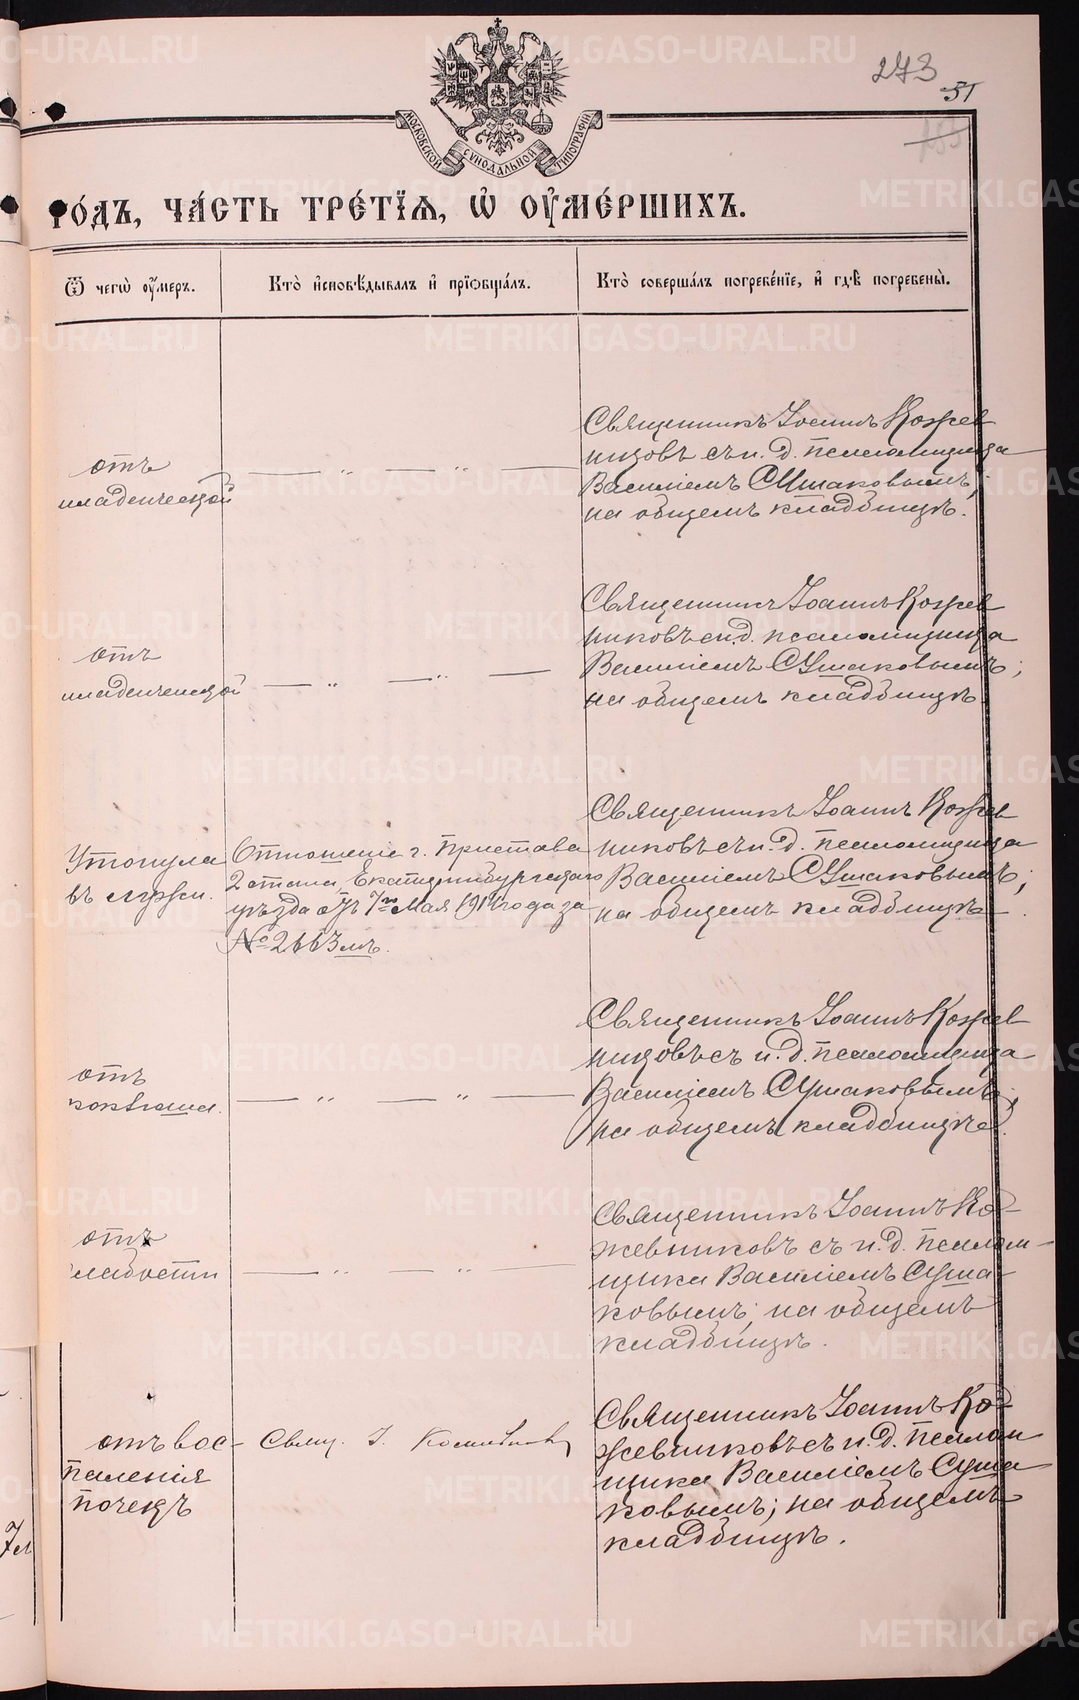 273
51
МОСКОВСКОЙ СѴНОДАЛЬНОЙ ТИПОГРАФІИ
го́дъ, ча́сть тре́тїѧ, ѡ҆ ᲂу҆ме́ршихъ.
Ѿ чегѡ̀ ᲂу҆́меръ.
Кто̀ и҆сповѣ́дывалъ и҆ прїѡбща́лъ.
Кто̀ соверша́лъ погребе́нїе, и҆ гдѣ̀ погребены̀.
отъ
младенческой
— „ — „ —
Священникъ Іоаннъ Кожев
никовъ съ и. д. псаломщика
Василіемъ Сушаковымъ;
на общемъ кладбищѣ.
отъ
младенческой
— „ — „ —
Священникъ Іоаннъ Кожев
никовъ съ и. д. псаломщика
Василіемъ Сушаковымъ;
на общемъ кладбищѣ.
Утонула
въ
Отношеніе г. Пристава
2 стана Екатеринбургскаго
уѣзда отъ 7го Мая 1914 года за
№ 2663мъ.
Священникъ Іоаннъ Кожев
никовъ съ и. д. псаломщика
Василіемъ Сушаковымъ;
на общемъ кладбищѣ.
отъ
коклюша.
— „ — „ —
Священникъ Іоаннъ Кожев
никовъ съ и. д. псаломщика
Василіемъ Сушаковымъ;
на общемъ кладбищѣ.
отъ
слабости
— „ — „ —
Священникъ Іоаннъ Ко-
жевниковъ съ и. д. псалом-
щика Василіемъ Суша-
ковымъ; на общемъ
кладбищѣ.
отъ вос-
паленія
почекъ
Свящ. І. Кожевниковъ
Священникъ Іоаннъ Ко-
жевниковъ съ и. д. псалом
щика Василіемъ Суша-
ковымъ; на общемъ
кладбищѣ.
METRIKI.GASO-URAL.RU